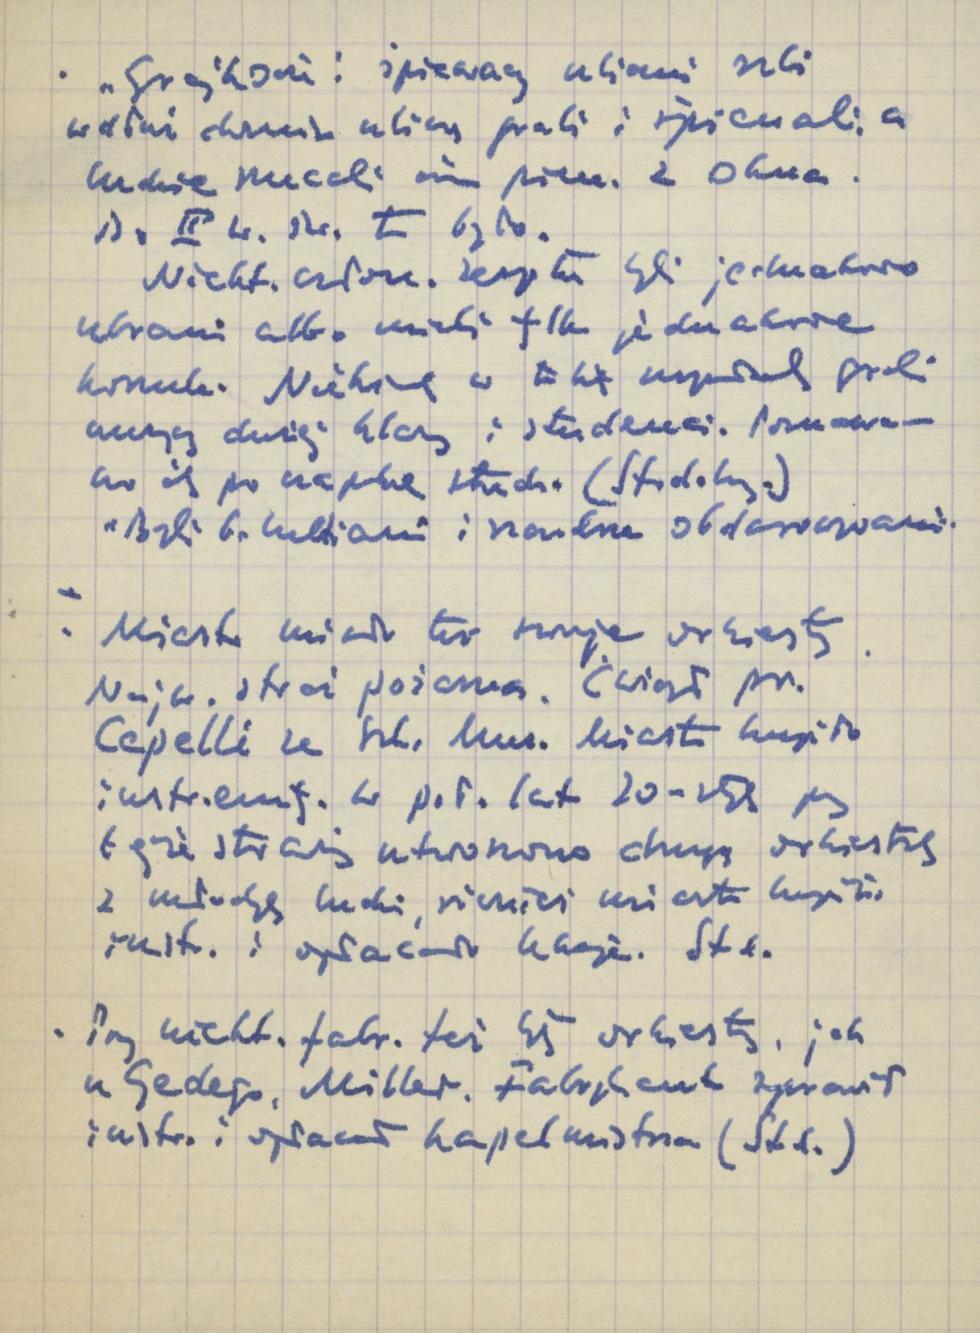 · „Grajkowie i śpiewacy ulicami szli
wzdłuż ulicy grali i śpiewali, a
ludzie rzucali im pien. z okna.
P. II w. św. to było.
Niekt. człon. zespołu byli jednakowo
ubrani albo mieli tylko jednakowe
koszule. Niekiedy w takich zespołach grali
muzycy dużej klasy i studenci. Poznawa-
no ich po czapkach stud. (Stodolny.)
"Byli b. lubiani i obdarowywani.
· Miasto miało też swoje orkiestry.
Najw. straż pożarna. Ćwiczył p.
Capelli ze Szk. Muz. Miasto kupiło
instrumenty. W poł. lat 20-tych przy
tejże straży utworzono drugą orkiestrę
z młodych ludzi, również miasto kupiło
instr. i opłacało St.
· Przy niekt. fabr. też były orkiestry, jak
u Gedego, Miller. Fabrykant sprawił
instr. i opłacał kapelmistrza (St.)